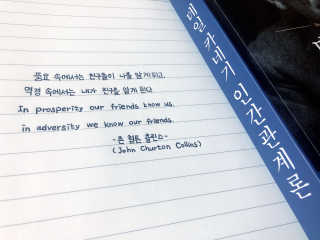 풍요 속에서는 친구들이 나를 알게되고,
역경 속에서는 내가 친구를 알게 된다.
In prosperity our friends know us,
in adversity we know our friends.
-존 철튼 콜린스-
(John Churton Collins)
데일 카네기 인간관계론